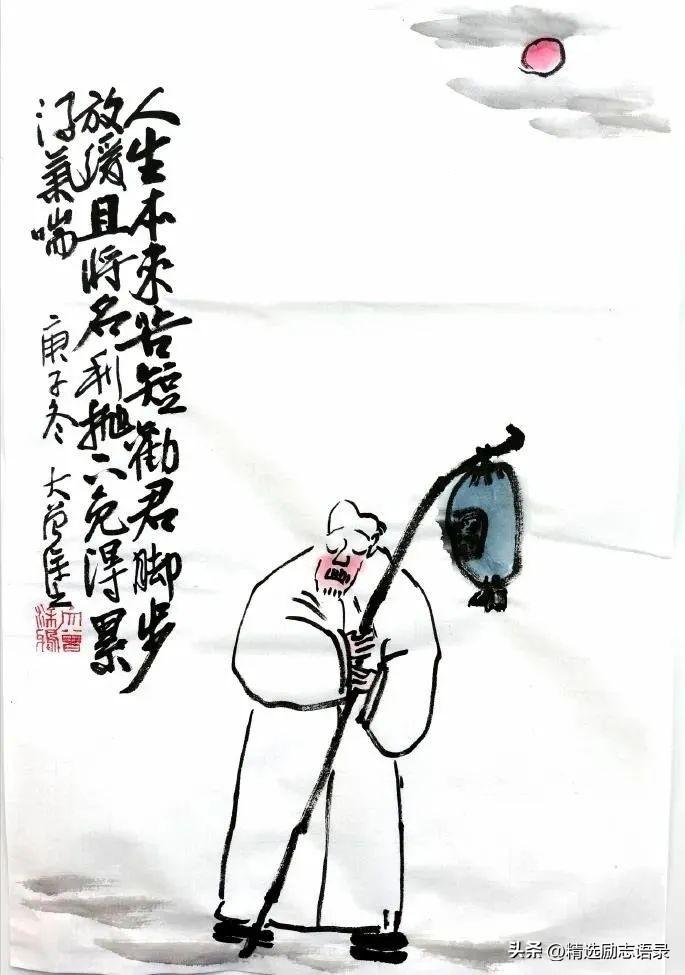 人生本来苦短勸君脚步
放缓且将名利抛下免得累
得氣喘
庚子冬 大曾
大曾
涂鸦
头条 @精选励志语录